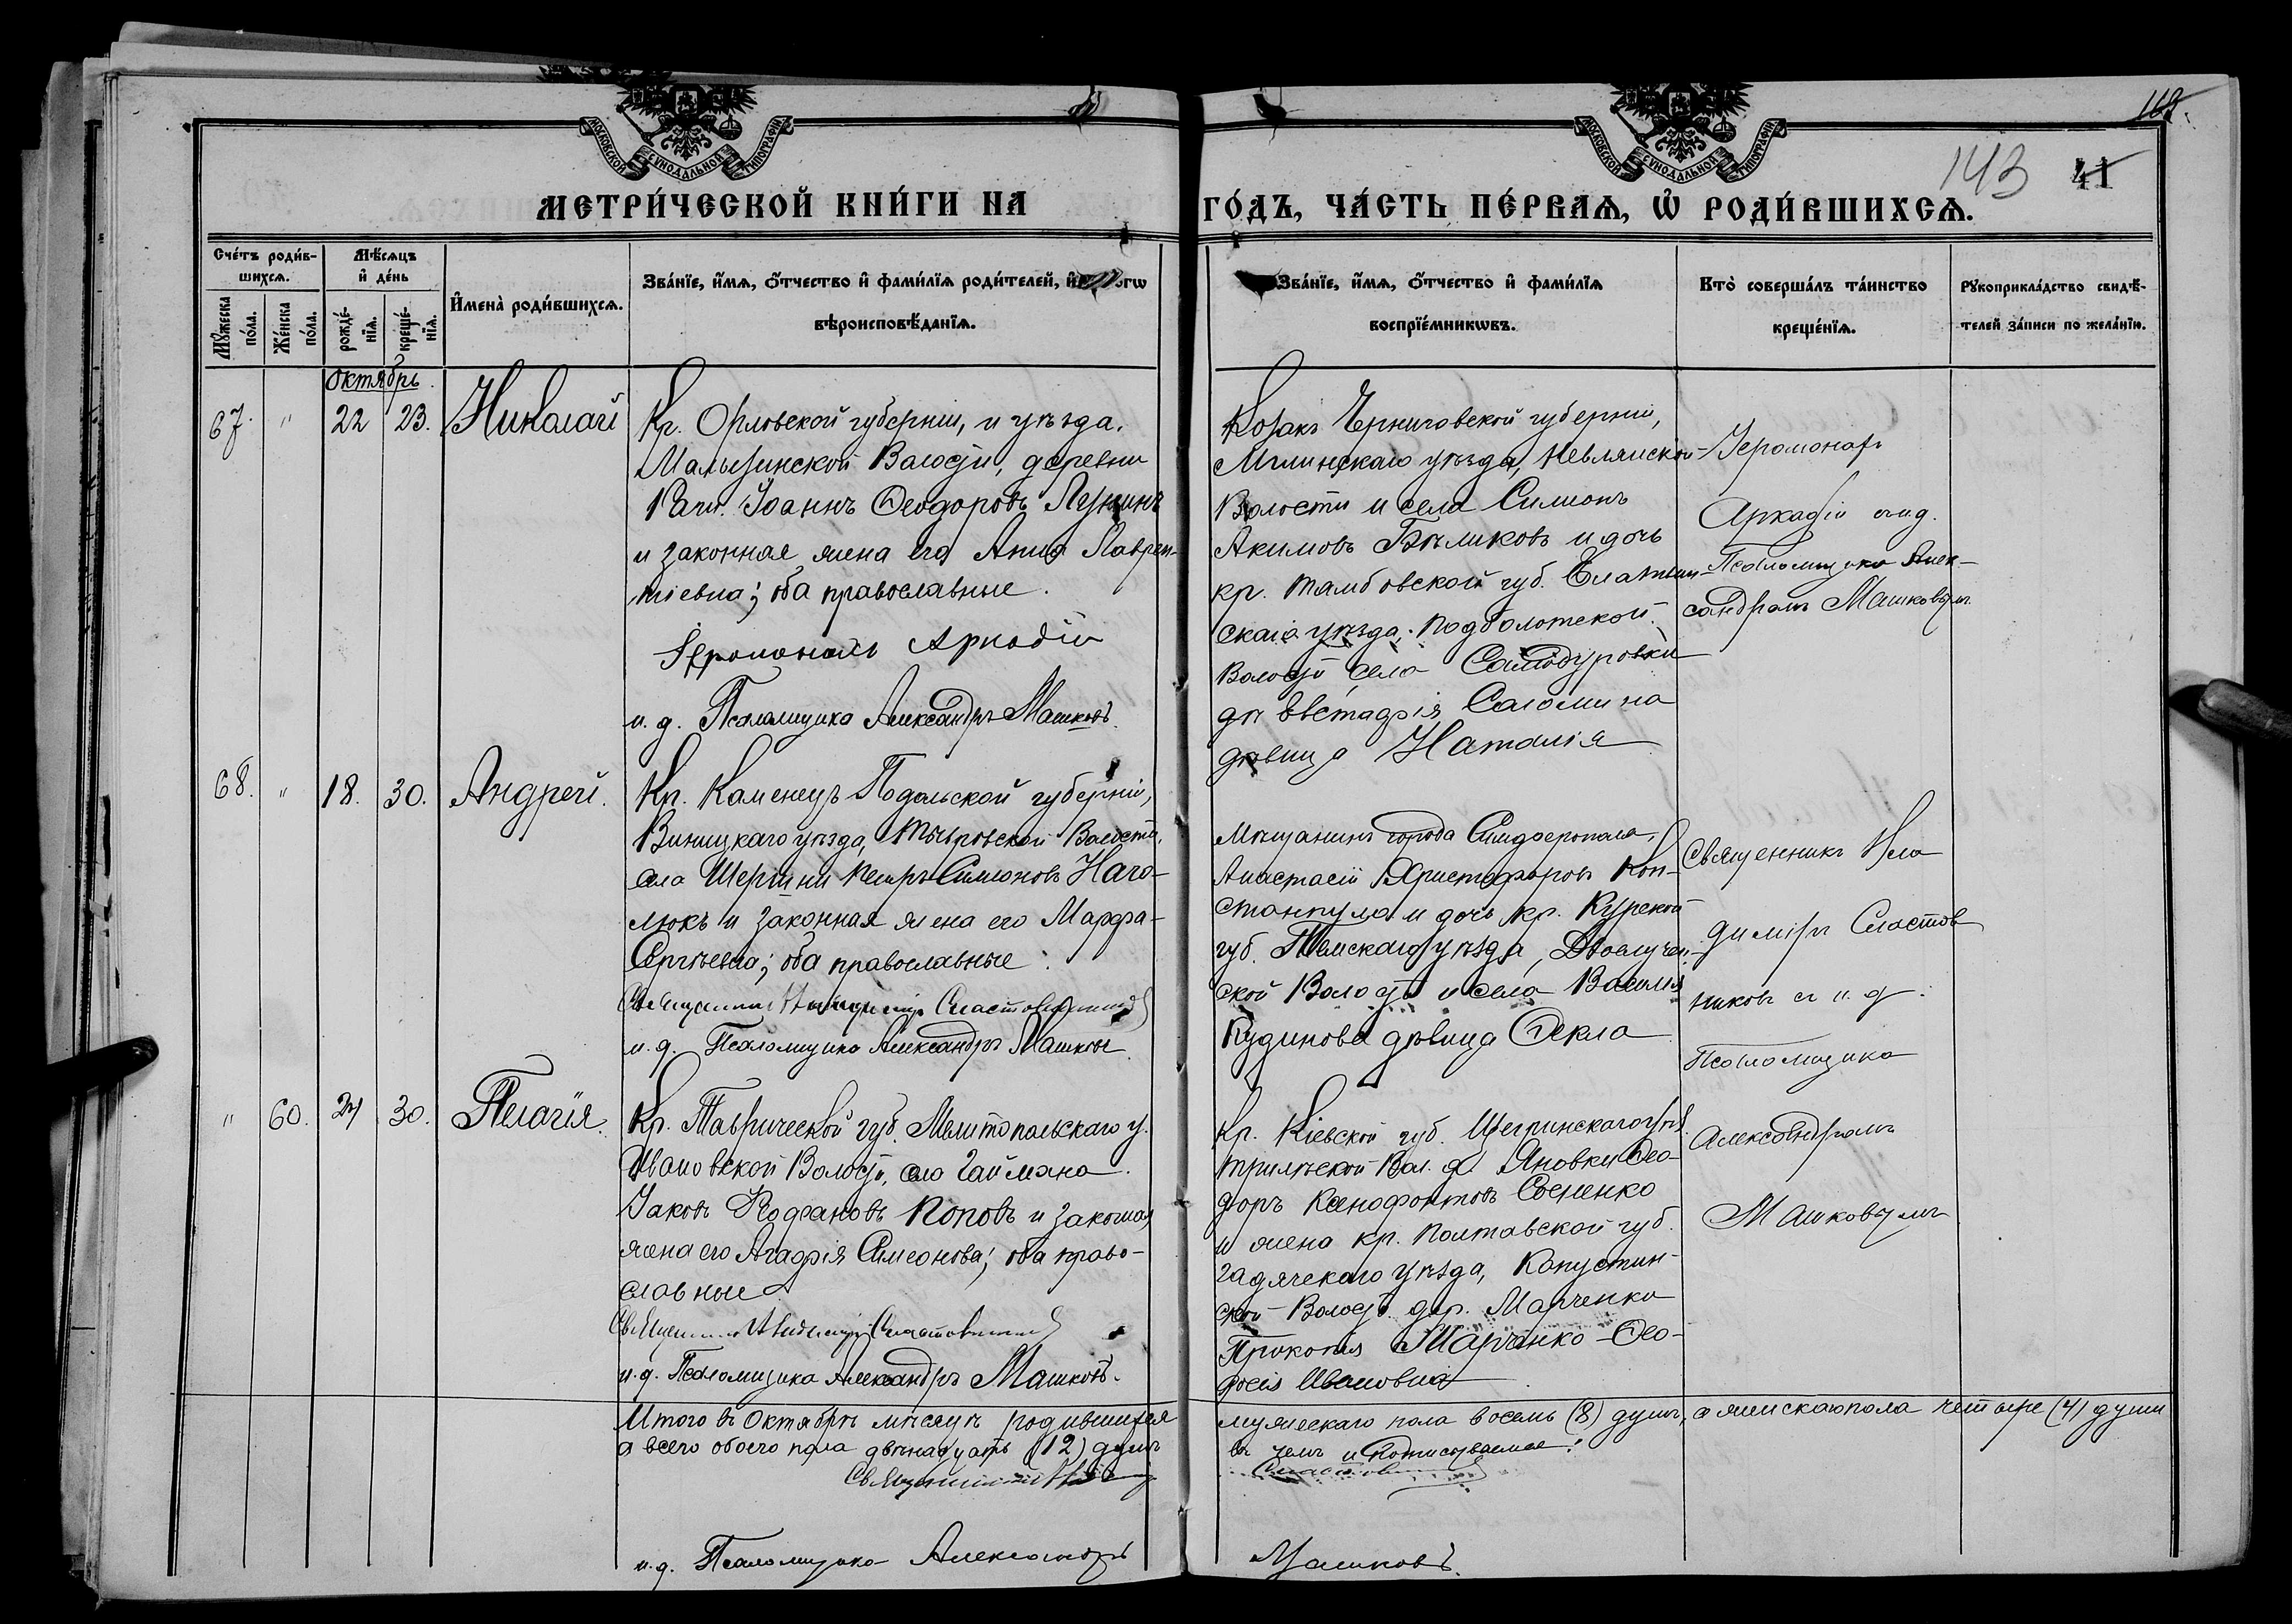 168.
143 41
МОСКОВСКОЙ СѴНОДАЛЬНОЙ ТИПОГРАФІИ
МОСКОВСКОЙ СѴНОДАЛЬНОЙ ТИПОГРАФІИ
МЕТРИ́ЧЕСКОЙ КНИ́ГИ НА
ГО́ДЪ, ЧА́СТЬ ПЕ́РВАѦ, Ѡ҆ РОДИ́ВШИХСѦ.
Сче́тъ роди́в-
шихсѧ.
Мѣ́сѧцъ
и҆ де́нь
Мꙋ́жеска
по́ла.
Же́нска
по́ла.
рожде́-
нїѧ.
креще́-
нїѧ.
И҆мена̀ роди́вшихсѧ.
Зва́нїе, и҆́мѧ, ѻ҆́тчество и҆ фами́лїѧ роди́телей, и҆
вѣроисповѣ́данїѧ.
Зва́нїе, и҆́мѧ, ѻ҆́тчество и҆ фами́лїѧ
воспрїе́мникѡвъ.
Кто̀ соверша́лъ та́инство
креще́нїѧ.
Рꙋкоприкла́дство свидѣ́-
телей за́писи по жела́нїю.
Октябрь
67. " 22 23. Николай
Кр. Орловской губерніи, и уѣзда,
Волости, деревни
Іоаннъ Ѳеодоровъ Лунинъ
и законная жена его Анна Лаврен-
тіевна; оба православные.
Іеромонахъ Аркадій
и. д. Псаломщика Александръ Машковъ.
Козакъ Черниговской губерніи,
Мглинскаго уѣзда,
Волости и села Симіонъ
Акимовъ Бѣликовъ и дочь
кр. Тамбовской губ. Елатьм-
скаго уѣзда, Подболотской
Волости села Самодуровки
Евстафія Саломина
дѣвица Наталія
Іеромонахъ
Аркадій и.д.
Псаломщика Алек-
сандромъ Машковымъ
68. " 18. 30. Андрей.
Кр. Каменецъ Подольской губерніи,
Виницкаго уѣзда, Тывровской Волости,
села Шершни Петръ Симіоновъ Наго-
люкъ и законная жена его Марфа
Сергѣевна; оба православные.
Священникъ Владиміръ Сластовниковъ
и. д. Псаломщика Александръ Машковъ.
Мѣщанинъ города Симферополя,
Анастасій Христофоровъ Кон-
стантуло и дочь кр. Курской
губ. уѣзда,
ской Волости и села Василія
Кудинова дѣвица Ѳекла
Священникъ Вла
диміръ Сластов
никовъ съ и. д.
Псаломщика
Александромъ
Машковымъ
" 60. 24 30. Пелагія.
Кр. Таврической губ. Мелитопольскаго у.
Ивановской Волости, села Гаймана
Іаковъ Поповъ и законная
жена его Агафія Симеонова; оба право-
славные
Священникъ Владиміръ Сластовниковъ
и. д. Псаломщика Александръ Машковъ.
Кр. Кіевской губ. Чегринскаго уѣз.
Трилѣсской Вол. д. Яновки Ѳео-
доръ Ксенофонтовъ
и жена кр. Полтавской губ.
Гадячскаго уѣзда, Капустин-
ской Волости дер. Марченки
Прокопія Марченко Ѳео-
досія Ивановна.
Итого въ Октябрѣ мѣсяцѣ родившихся мужескаго пола восемь (8) душъ, а женскаго пола четыре (4) души
а всего обоего пола двѣнадцать (12) душъ въ чемъ и подписываемся:
Священникъ Сластовниковъ
и. д. Псаломщика Александръ Машковъ.